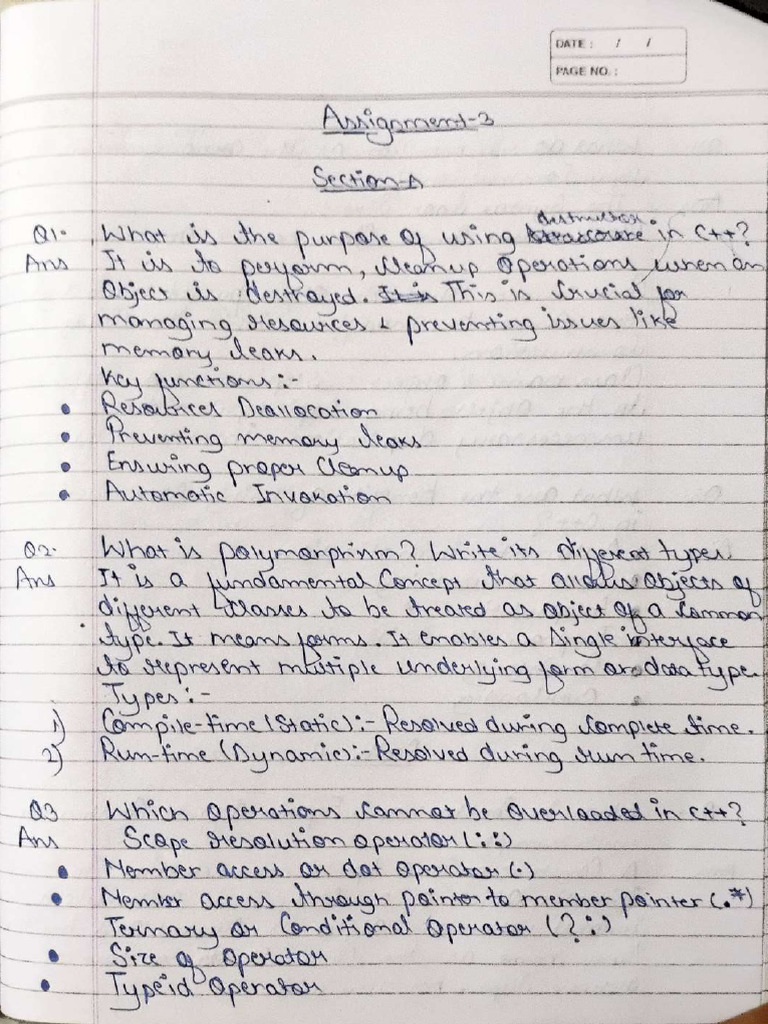 DATE : / /
PAGE NO. :
Assignment-3
Section-A
Q1. What is the purpose of using destructor in C++?
Ans It is to perform, cleanup operations when an
Object is destroyed. It is This is crucial for
managing resources & preventing issues like
memory leaks.
Key functions :-
• Resources Deallocation
• Preventing memory leaks
• Ensuring proper Cleanup
• Automatic Invokation
Q2. What is polymorphism? Write its Different types.
Ans It is a fundamental Concept that allows objects of
different classes to be treated as object of a common
type. It means forms. It enables a single interface
to represent multiple underlying form or data type.
Types :-
1) Compile-time (Static) :- Resolved during complete time.
2) Run-time (Dynamic) :- Resolved during run time.
Q3 Which operations cannot be overloaded in C++?
Ans Scope resolution operator (::)
• Member access or dot operator (.)
• Member access through pointer to member pointer (.*)
Ternary or Conditional operator (?:)
• Size of operator
• Typeid operator